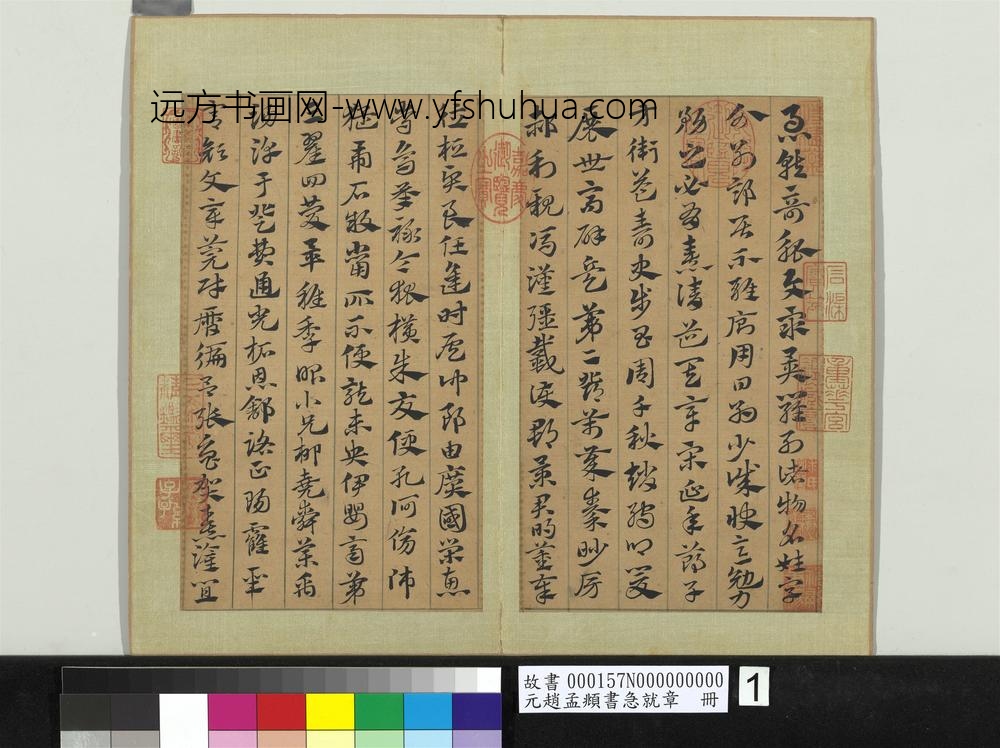 急就奇觚與衆異羅列諸物名姓字
分別部居不雜廁用日約少誠快意勉力
務之必有憙請道其章宋延年鄭子
方衛益壽史步昌周千秋趙孺卿爰
展世高辟兵第二鄧萬歲秦眇房
郝利親馮漢彊戴護郡景君明董奉
德桓賢良任逢時侯仲郎由廣國榮惠
常烏承祿令狐橫朱交便孔何傷師
猛虎石敢當所不侵龍未央伊嬰齊第
三翟回慶畢稚季昭小兄柳堯舜藥禹
湯淳于登費通光柘恩舒路正陽霍聖
宮顏文章莞財歷偏呂張魯賀憙灌宜
嘉慶御覽之寶
远方书画网-www.yfshuhua.com
故書 000157N000000000
元趙孟頫書急就章 冊
1